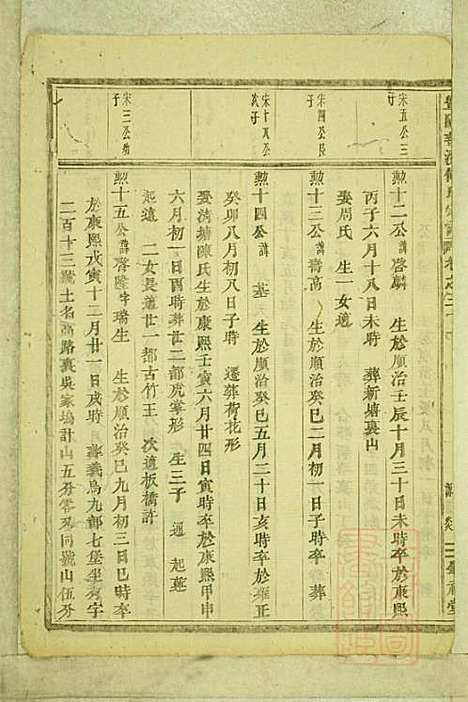 宋五公三
子
勲十二公諱啓麟 生於順治壬辰十月三十日未時卒於康熙
丙子六月十八日未時 葬新塘裏山
娶周氏 生一女適
宋四公長
子
勲十三公諱喬高 生於順治癸巳二月初一日子時卒 葬
宋十八公
次子
勲十四公諱基 生於順治癸巳五月二十日亥時卒於雍正
癸卯八月初八日子時 遷葬荷花形
娶清塘陳氏生於康熙壬寅六月廿四日寅時卒於康熙甲申
六月初一日酉時葬廿二都虎掌形 生三子 通 起蓮
起遠 二女長適廿一都古竹王 次適板橋許
宋三公幼
子
勲十五公諱啓隆字瑞生 生於順治癸巳九月初三日巳時卒
於康熙戊寅十二月廿一日戌時 葬義烏九都七堡坐 字
二百十三號土名高路裏吳家塢計山五分零又同號山伍分